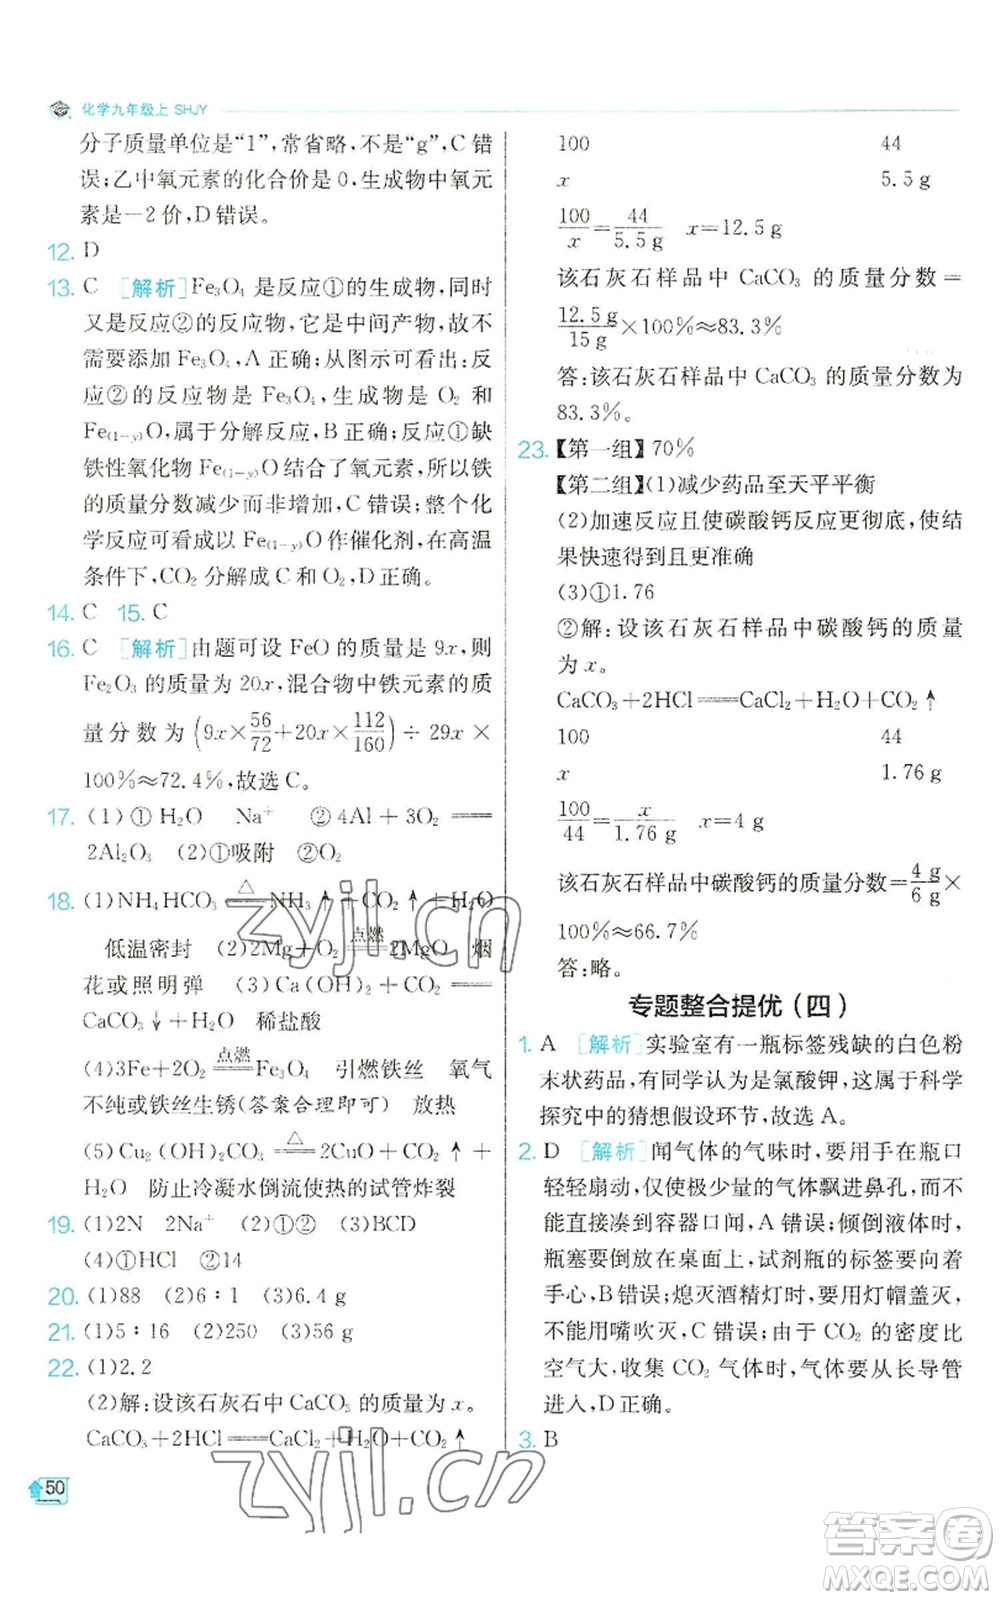 化学九年级上 SHJY
分子质量单位是“1”,常省略,不是“g”,C错
误;乙中氧元素的化合价是0,生成物中氧元
素是-2价,D错误。
12. D
13. C [解析]Fe₃O₄ 是反应①的生成物,同时
又是反应②的反应物,它是中间产物,故不
需要添加 Fe₃O₄,A 正确;从图示可看出:反
应②的反应物是 Fe₃O₄,生成物是 O₂ 和
Fe₍₁₋y₎O,属于分解反应,B 正确;反应①缺
铁性氧化物 Fe₍₁₋y₎O 结合了氧元素,所以铁
的质量分数减少而非增加,C 错误;整个化
学反应可看成以 Fe₍₁₋y₎O 作催化剂,在高温
条件下,CO₂ 分解成 C 和 O₂,D 正确。
14. C 15. C
16. C [解析]由题可设 FeO 的质量是 9x,则
Fe₂O₃ 的质量为 20x,混合物中铁元素的质
量分数为 (9x×56/72+20x×112/160)÷29x×
100%≈72.4%,故选 C。
17. (1)① H₂O Na⁺ ② 4Al + 3O₂ ══
2Al₂O₃ (2)①吸附 ②O₂
18. (1)NH₄HCO₃ ══△ NH₃↑+CO₂↑+H₂O
低温密封 (2)2Mg+O₂ ══点燃 2MgO 烟
花或照明弹 (3)Ca(OH)₂+CO₂══
CaCO₃↓+H₂O 稀盐酸
(4)3Fe+2O₂ ══点燃 Fe₃O₄ 引燃铁丝 氧气
不纯或铁丝生锈(答案合理即可) 放热
(5)Cu₂(OH)₂CO₃ ══△ 2CuO + CO₂↑+
H₂O 防止冷凝水倒流使热的试管炸裂
19. (1)2N 2Na⁺ (2)①② (3)BCD
(4)①HCl ②14
20. (1)88 (2)6∶1 (3)6.4 g
21. (1)5∶16 (2)250 (3)56 g
22. (1)2.2
(2)解:设该石灰石中 CaCO₃ 的质量为 x。
CaCO₃+2HCl══CaCl₂+H₂O+CO₂↑
50
100 44
x 5.5 g
100/x=44/5.5 g x=12.5 g
该石灰石样品中 CaCO₃ 的质量分数=
12.5 g/15 g×100%≈83.3%
答:该石灰石样品中 CaCO₃ 的质量分数为
83.3%。
23. 【第一组】70%
【第二组】(1)减少药品至天平平衡
(2)加速反应且使碳酸钙反应更彻底,使结
果快速得到且更准确
(3)①1.76
②解:设该石灰石样品中碳酸钙的质量
为 x。
CaCO₃+2HCl══CaCl₂+H₂O+CO₂↑
100 44
x 1.76 g
100/44=x/1.76 g x=4 g
该石灰石样品中碳酸钙的质量分数=4 g/6 g×
100%≈66.7%
答:略。
专题整合提优(四)
1. A [解析]实验室有一瓶标签残缺的白色粉
末状药品,有同学认为是氯酸钾,这属于科学
探究中的猜想假设环节,故选 A。
2. D [解析]闻气体的气味时,要用手在瓶口
轻轻扇动,仅使极少量的气体飘进鼻孔,而不
能直接凑到容器口闻,A 错误;倾倒液体时,
瓶塞要倒放在桌面上,试剂瓶的标签要向着
手心,B 错误;熄灭酒精灯时,要用灯帽盖灭,
不能用嘴吹灭,C 错误;由于 CO₂ 的密度比
空气大,收集 CO₂ 气体时,气体要从长导管
进入,D 正确。
3. B
zyjl.cn
zyjl.cn
答案卷
MXQE.COM